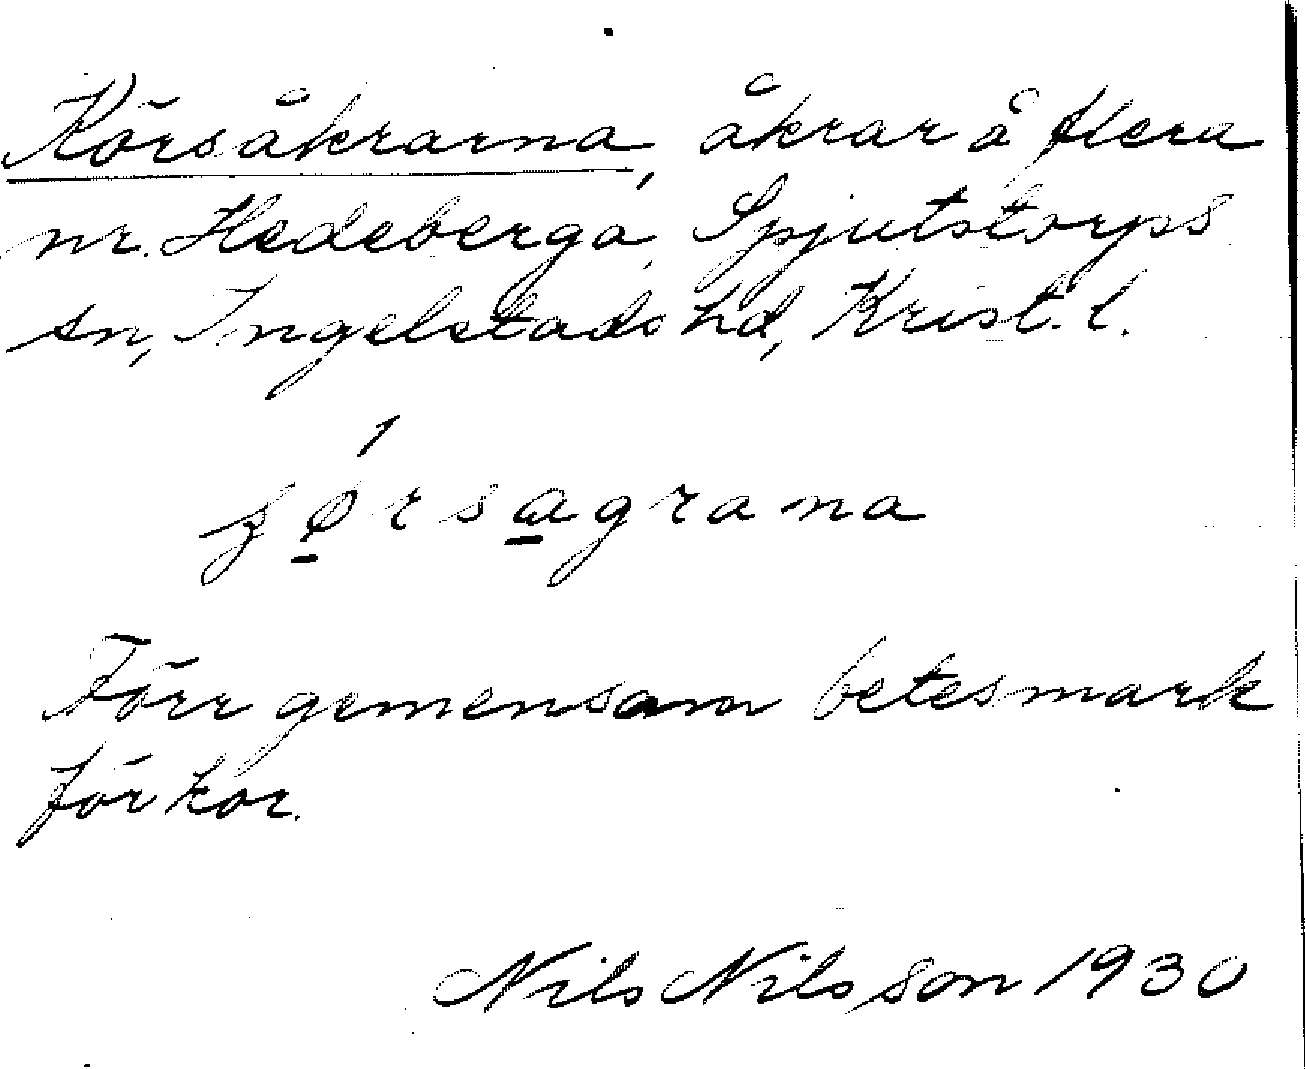 Körsåkrarna, åkrar å flera
nr. Hedeberga, Spjutstorps
sn, Ingelstads hd, Krist. l.
ɟø̱rsa̱grana
Förr gemensam betesmark
för kor.
Nils Nilsson 1930